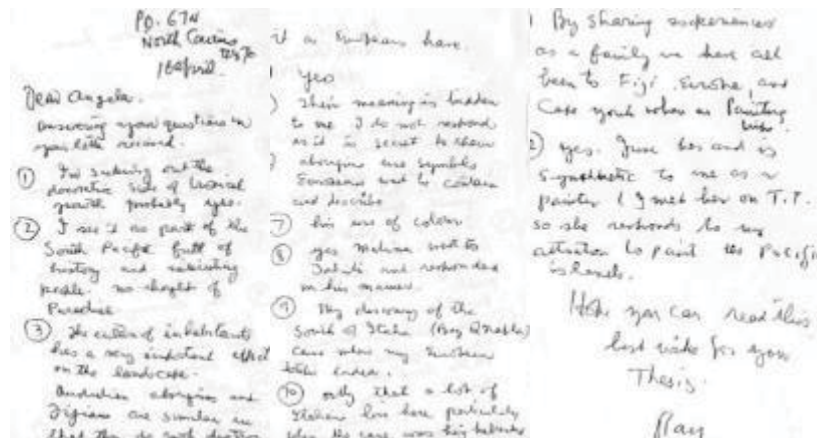 P.O. 674
North Cairns
16 April.
Dear Angela.
answering your questions in
your letter received.
① I'm seeking out the
decorative side of tropical
growth probably yes.
② I see it as part of the
South Pacific full of
history and interesting
people. no thought of
Paradise
③ The culture of inhabitants
has a very important effect
on the landscape.
Australian aborigines and
Fijians are similar in
that they do not destroy
it as Europeans have.
yes
Their meaning is hidden
to me I do not respond
as it is secret to them
aborigines use symbols
Europeans and
and describe
⑦ his use of colour
⑧ yes Matisse went to
Tahiti and responded
in his manner.
⑨ My discovery of the
South of Italy (Bay of Naples)
came when my European
⑩ only that a lot of
Italians live here particularly
when the cane was
By sharing experiences
as a family we have all
been to Fiji, Europe, and
Cape York when on Painting
trips.
yes. June has and is
sympathetic to me as a
painter (I met her on T.I.
so she responds to my
attraction to paint the Pacific
islands.
Hope you can read this
best wishes for your
Thesis.
Ray